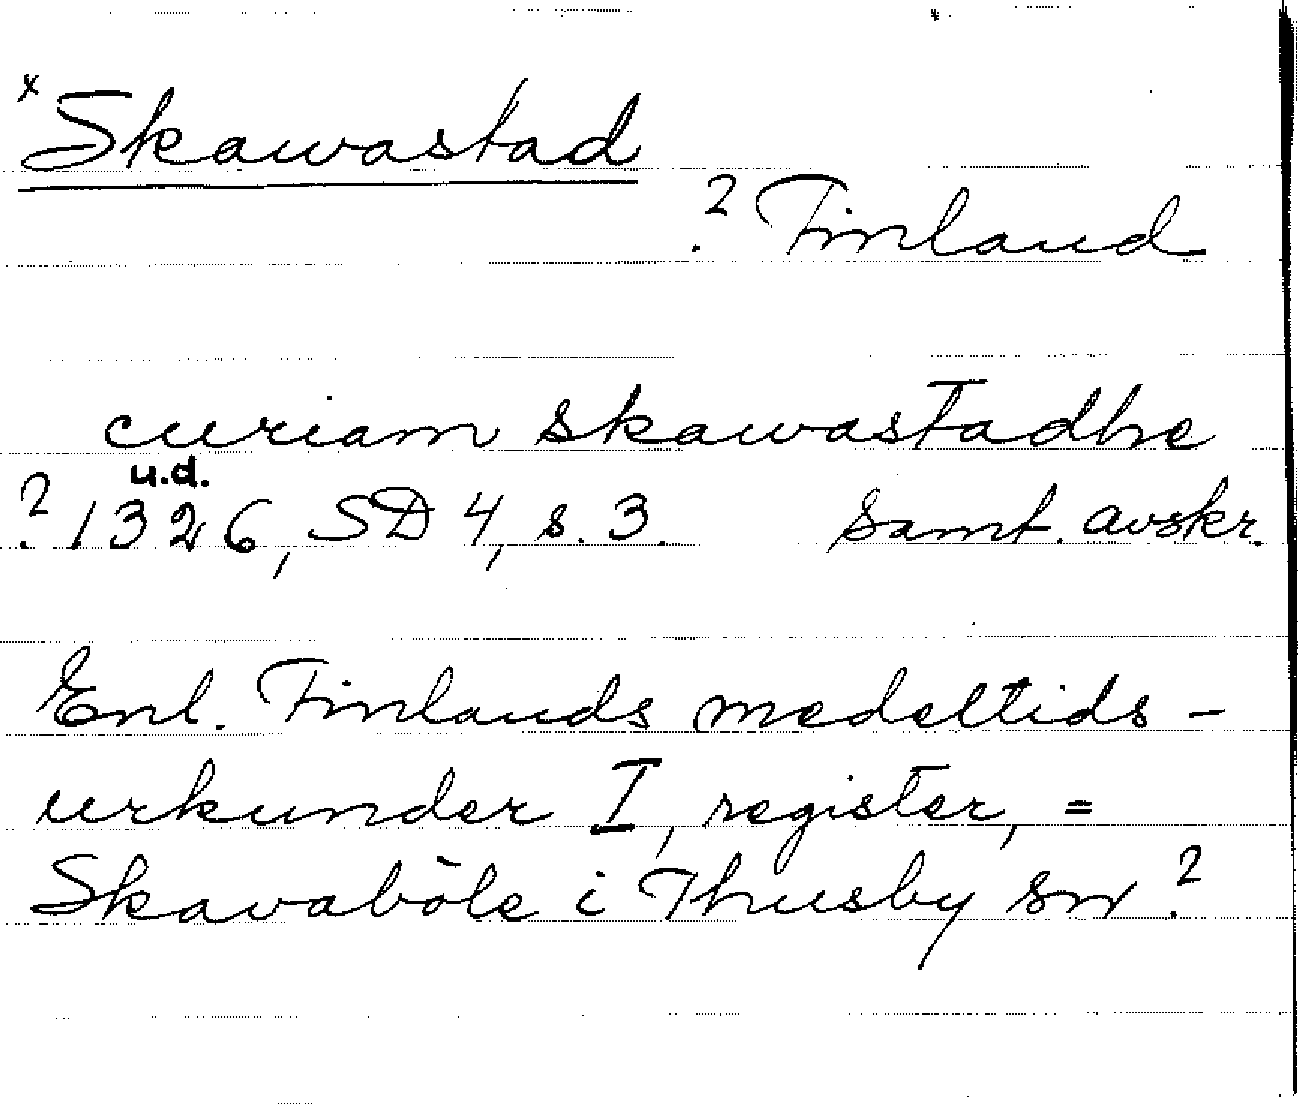 x Skawastad
? Finland
curiam skawastadhe
u.d.
? 1326, SD 4, s. 3. Samt. avskr.
Enl. Finlands medeltids-
urkunder I, register, =
Skavaböle i Thusby sn?